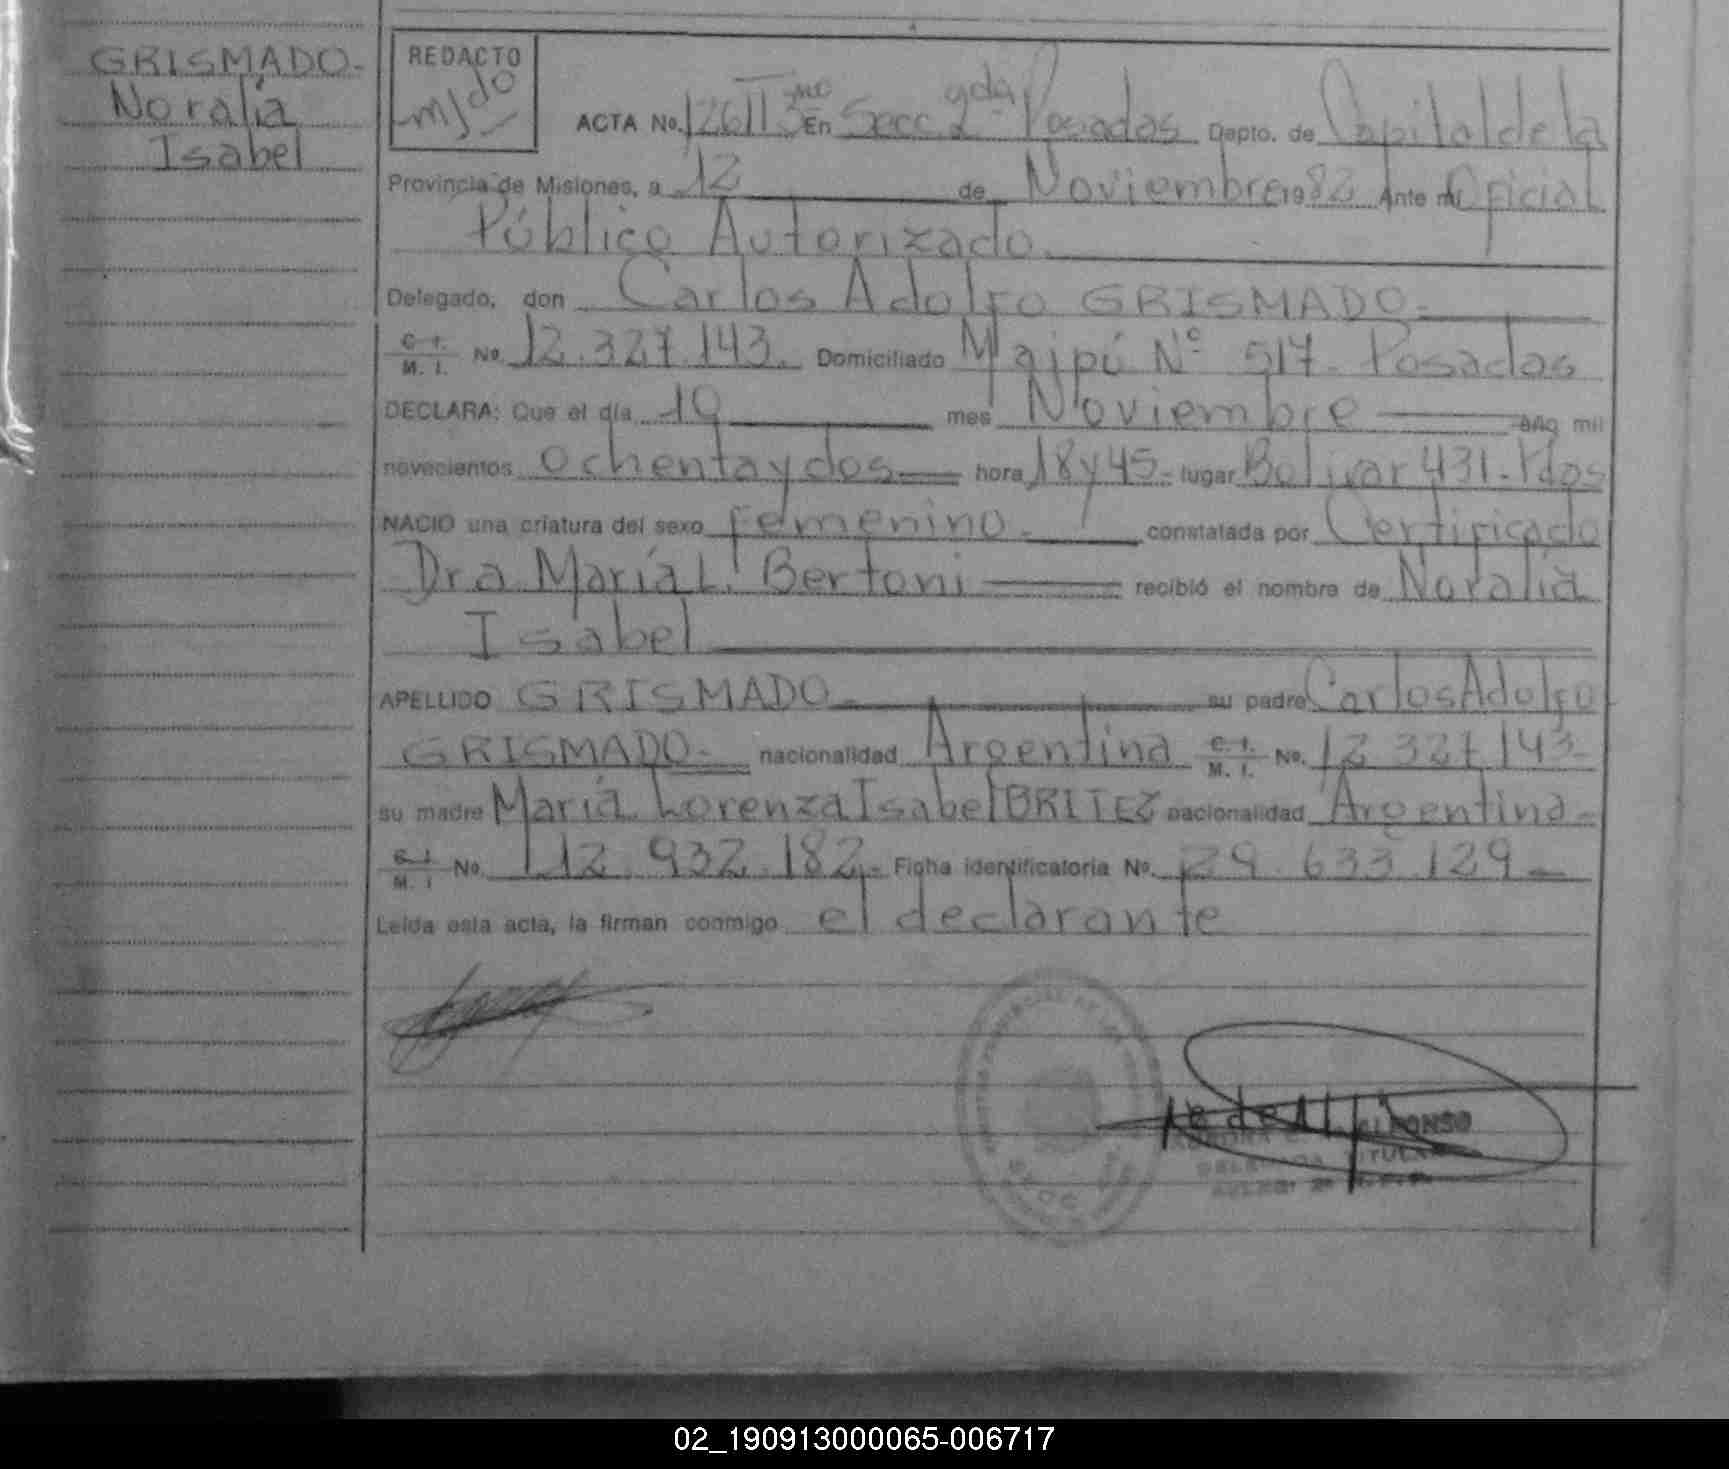 GRISMADO-
Noralia
Isabel
REDACTO
ACTA No. En Secc 2 gda Posadas Depto. de Capital de la
Provincia de Misiones, a 12 de Noviembre 1982 Ante mí Oficial
Público Autorizado
Delegado, don Carlos Adolfo GRISMADO-
C. I. M. I. No. 12.327.143. Domiciliado Maipú Nº 517- Posadas
DECLARA: Que el día 10 mes Noviembre año mil
novecientos ochenta y dos hora 18 y 45- lugar Bolivar 431- Pdas
NACIO una criatura del sexo femenino- constatada por Certificado
Dra María L. Bertoni recibió el nombre de Noralia
Isabel
APELLIDO GRISMADO- su padre Carlos Adolfo
GRISMADO- nacionalidad Argentina C. I. M. I. No. 12 327 143-
su madre María Lorenza Isabel BRITEZ nacionalidad Argentina-
C. I. M. I No. 12.932.182- Ficha identificatoria No. 29.633.129-
Leída esta acta, la firman conmigo el declarante
ALFONSO
DELEGADA TITULAR
02_190913000065-006717